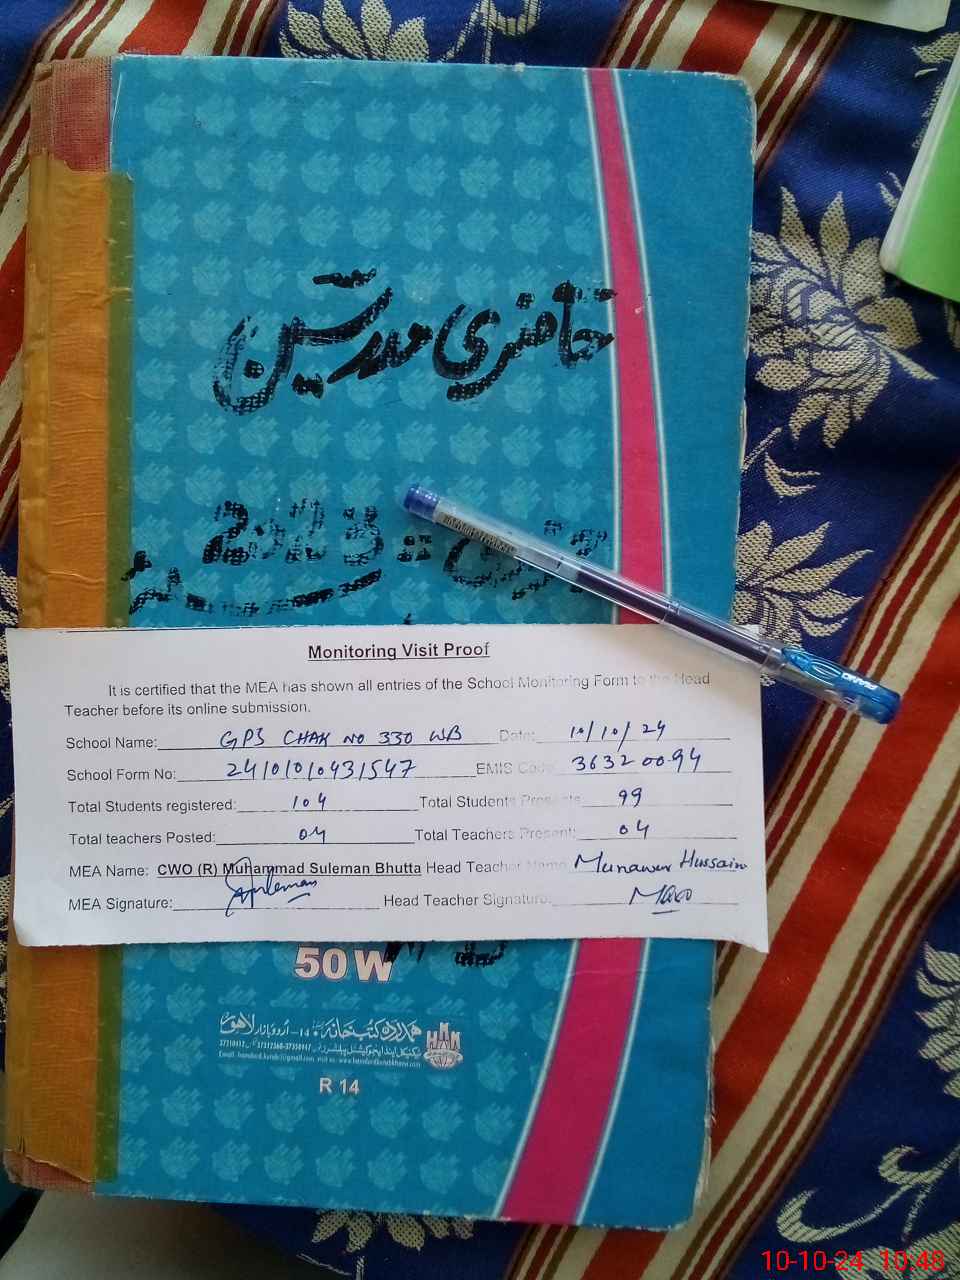 حاضری مدرسین
2023
Monitoring Visit Proof
It is certified that the MEA has shown all entries of the School Monitoring Form to the Head
Teacher before its online submission.
School Name: GPS CHAK NO 330 WB Date: 10/10/24
School Form No: 241010431547 EMIS Code: 36320094
Total Students registered: 104 Total Students Presents 99
Total teachers Posted: 04 Total Teachers Present: 04
MEA Name: CWO (R) Muhammad Suleman Bhutta Head Teacher Name Munawar Hussain
MEA Signature: Suleman Head Teacher Signature:
50 W
ہمدرد کتب خانہ 14-اردو بازار لاہور
R 14
10-10-24 10:48